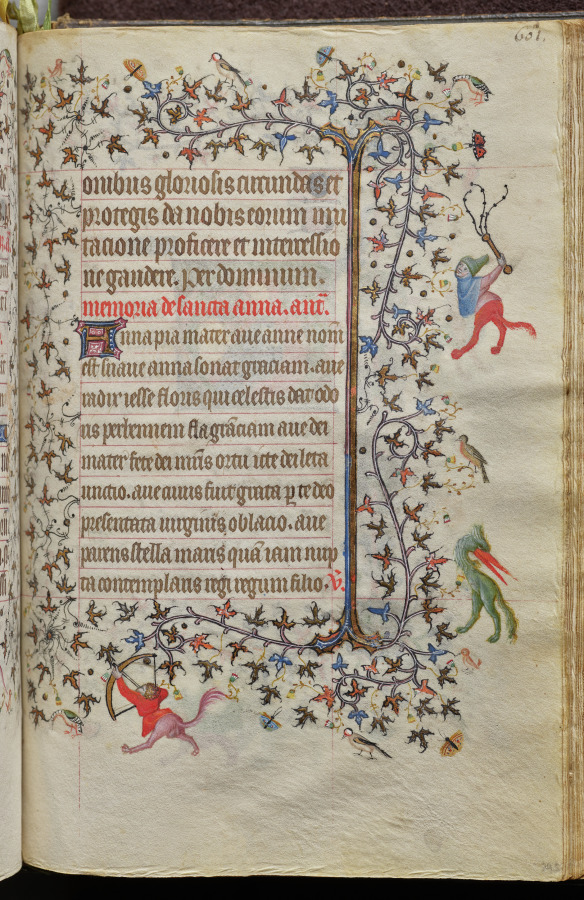 651.
onibus gloriosis circundas et
protegis da nobis eorum imi
tacione proficere et intercessio
ne gaudere. Per dominum.
memoria de sancta anna. ant̄.
Anna pia mater aue anne nom̄
est suaue anna sonat graciam. aue
radix iesse floris qui celestis dat odo
ris perhennem flagrāciam aue dei
mater
ortu
dei leta
unctio. aue cuius fuit grata p te deo
presentata uirginis oblacio. aue
parens stella maris quā iam nup
ta contemplaris regi regum filio. V̄.